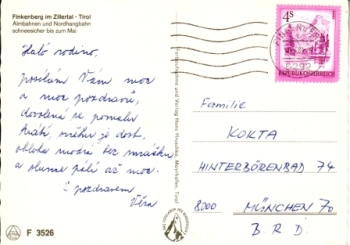 Finkenberg im Zillertal · Tirol
Almbahnen und Nordhangbahn
schneesicher bis zum Mai
Haló rodino,
posílám Vám moc
a moc pozdravů,
dovolená se pomalu
krátí, sněhu je dost,
obloha modrá bez mráčku
a slunce pálí až moc.
S pozdravem
Věra
F 3526
4 S
REPUBLIK ÖSTERREICH
6292
Familie
KOKTA
HINTERBÖRENBAD 74
8000 MÜNCHEN 70
B.R.D.